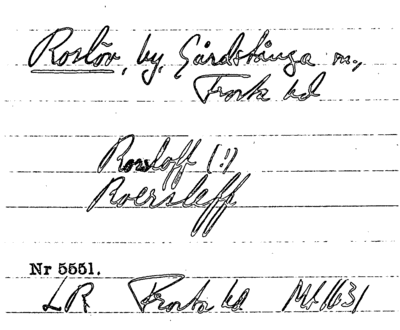 Roslöv, by, Gårdstånga sn.,
Frosta hd
Rorsloff (!)
Roersleff
Nr 5551.
LR Frosta hd Ml 1631